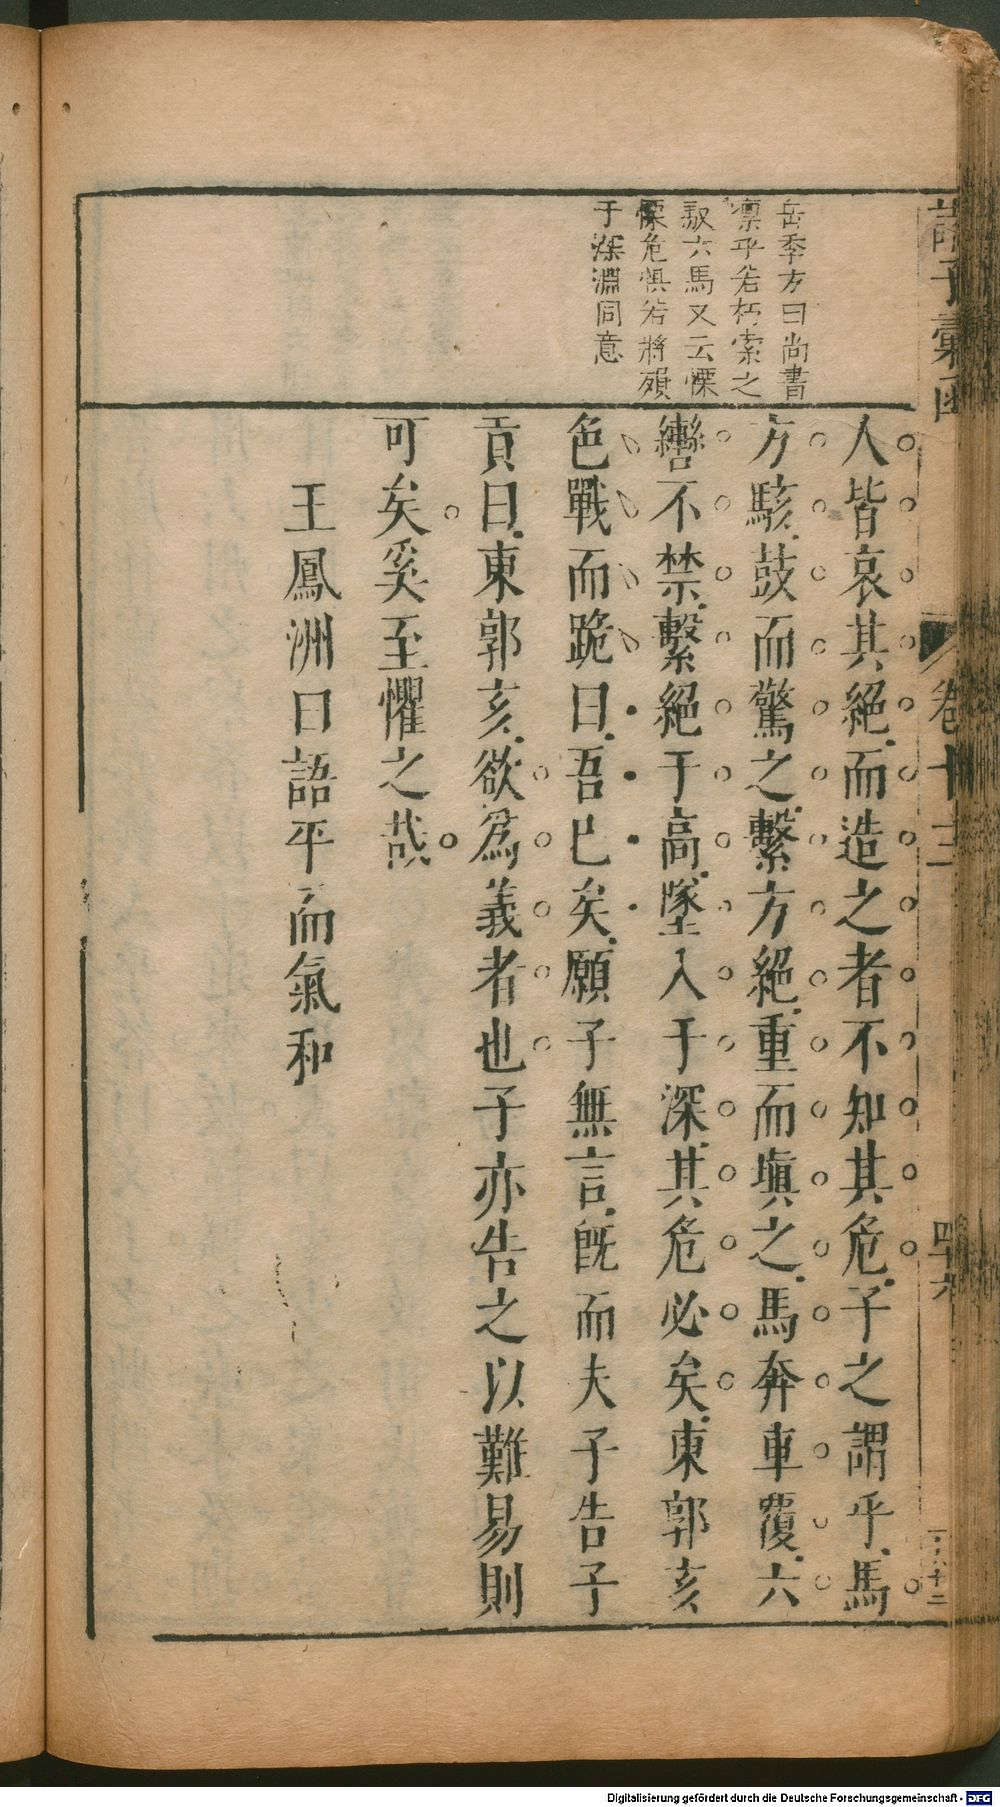 諸子彙函
卷十三
四十六
岳季方曰尚書
凛乎若朽索之
馭六馬又云慄
慄危懼若將殞
于深淵同意
人皆哀其絕而造之者不知其危子之謂乎馬
方駭鼓而驚之繫方絕重而塡之馬奔車覆六
轡不禁繫絕于高墜入于深其危必矣東郭亥
色戰而跪曰吾已矣願子無言旣而夫子告子
貢曰東郭亥欲爲義者也子亦告之以難易則
可矣奚至懼之哉
王鳳洲曰語平而氣和
Digitalisierung gefördert durch die Deutsche Forschungsgemeinschaft - DFG